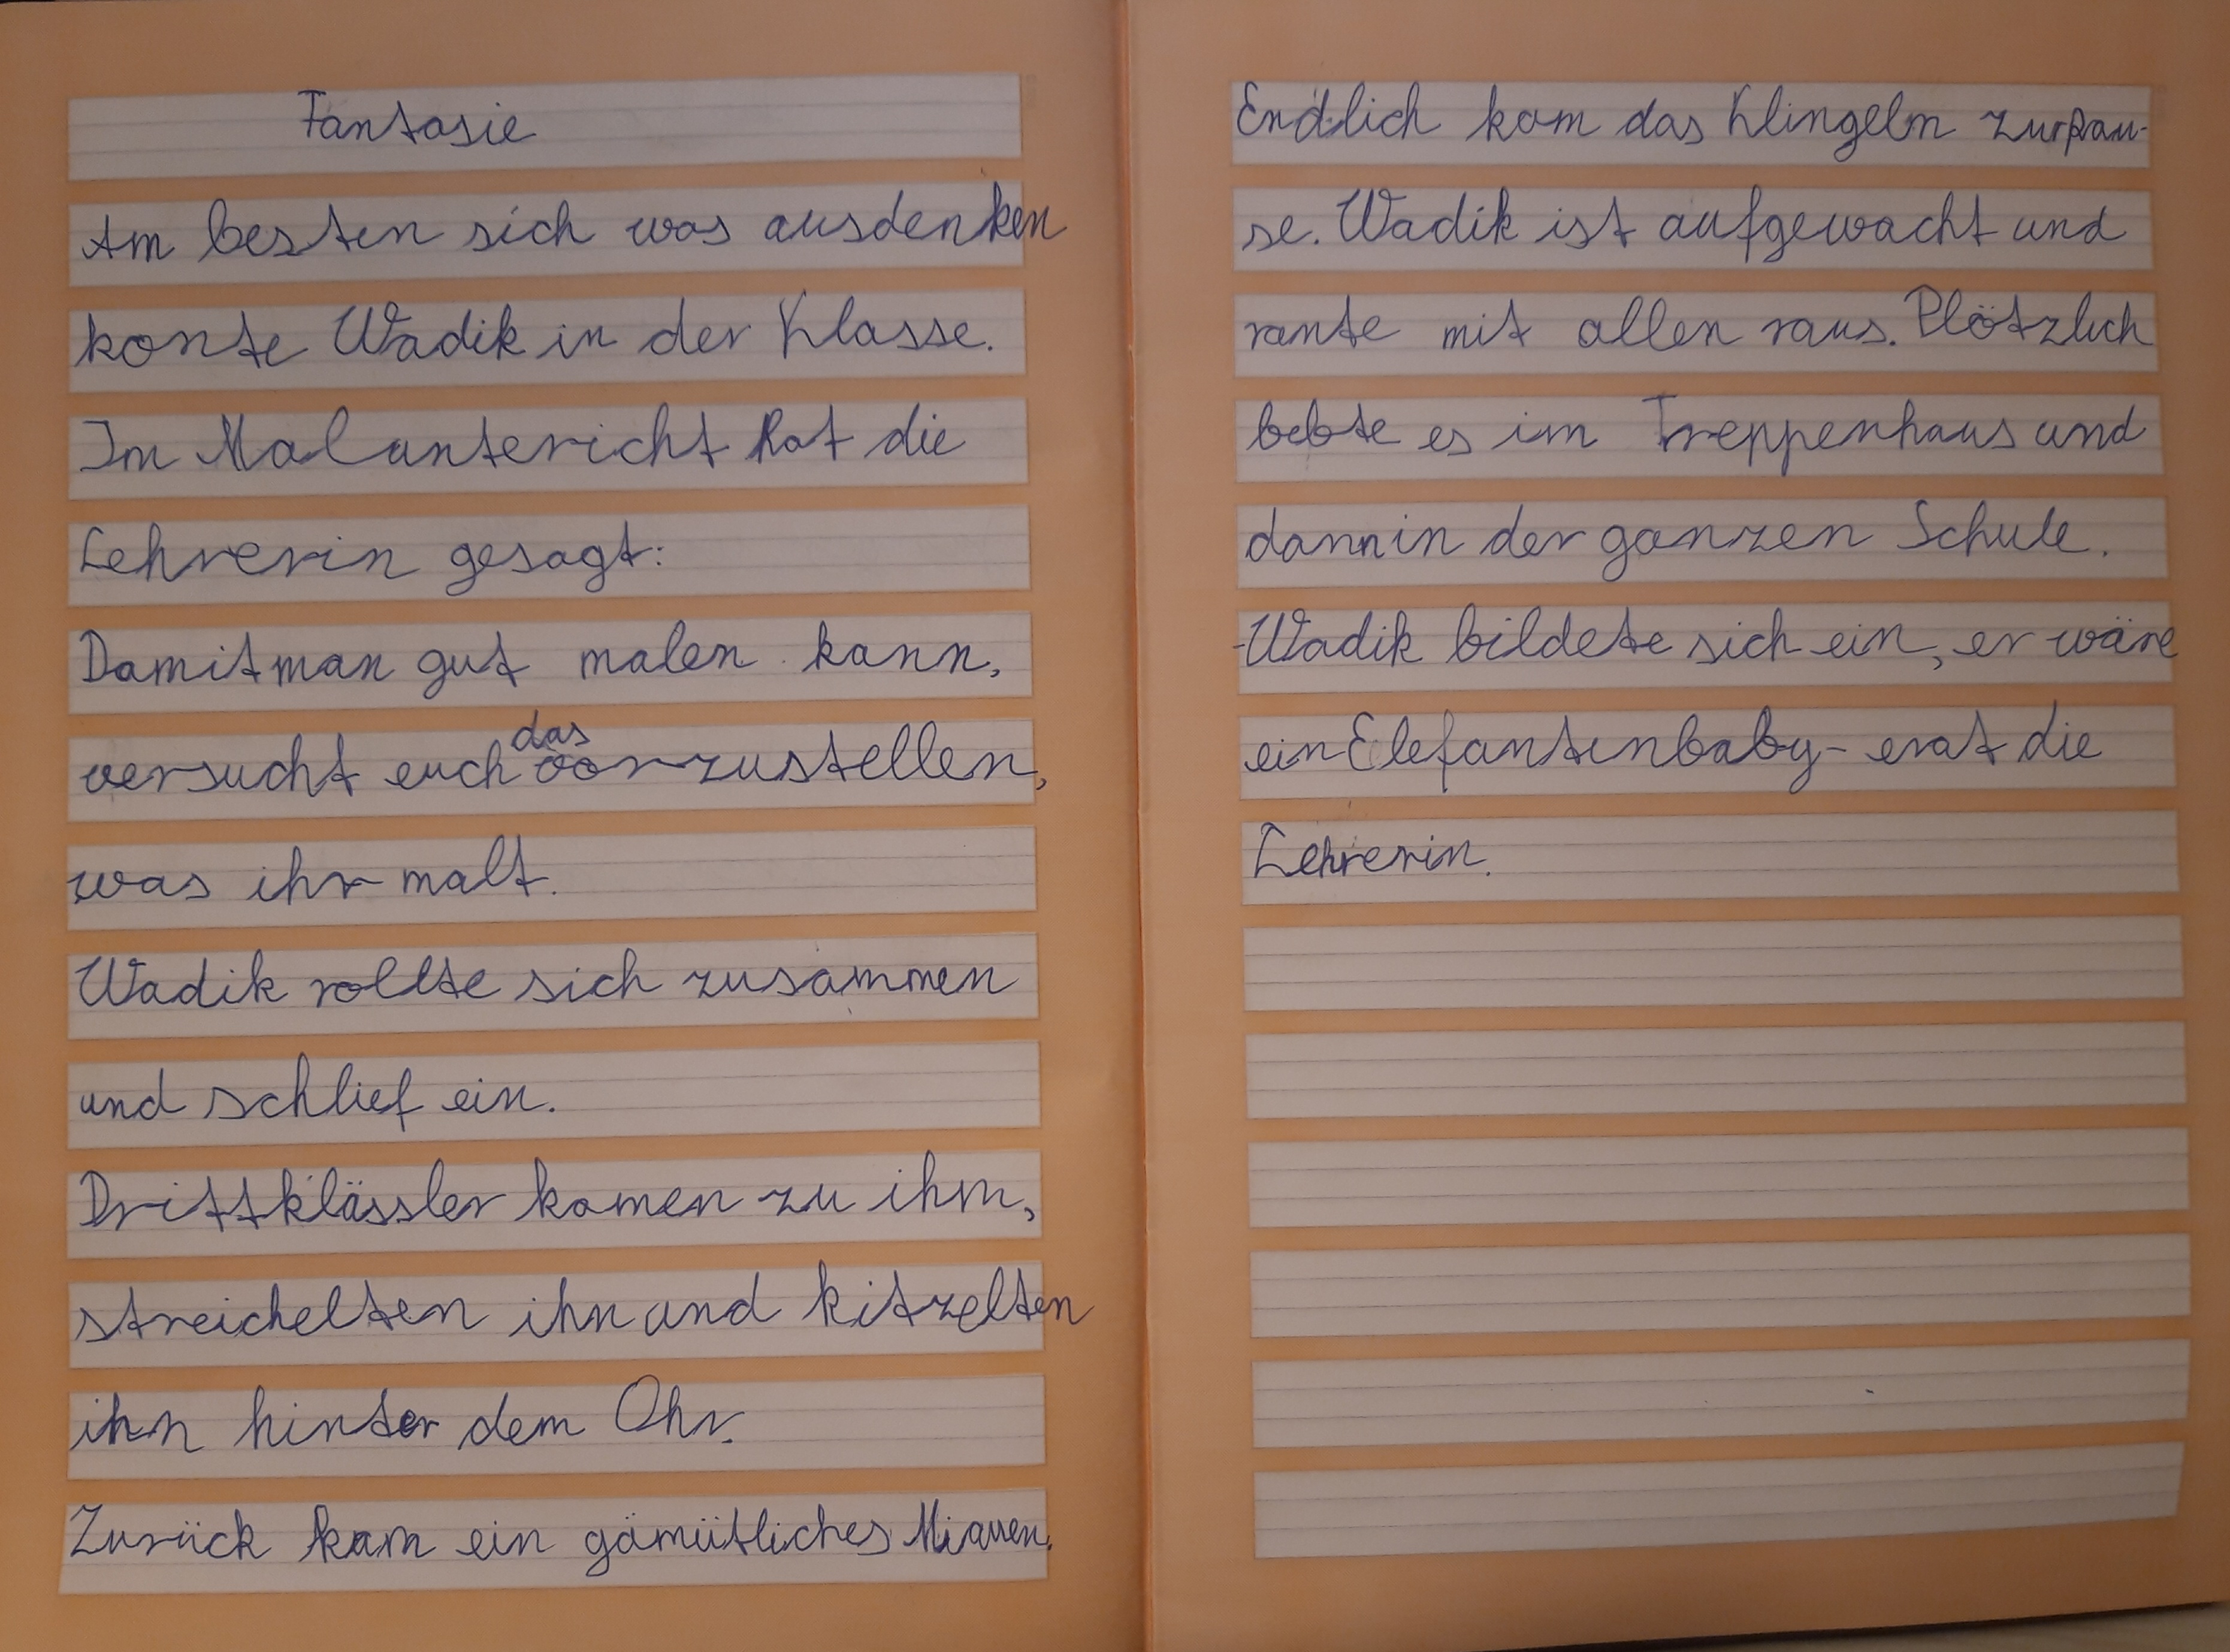 Fantasie
Am besten sich was ausdenken
konte Wadik in der Klasse.
Im Malunterricht hat die
Lehrerin gesagt:
Damit man gut malen kann,
versucht euch das vorzustellen,
was ihr malt.
Wadik rollte sich zusammen
und schlief ein.
Drittklässler kamen zu ihm,
streichelten ihn und kitzelten
ihn hinter dem Ohr.
Zurück kam ein gämütliches Miauen.
Endlich kam das Klingeln zur Pau-
se. Wadik ist aufgewacht und
rante mit allen raus. Plötzlich
bebte es im Treppenhaus und
dann in der ganzen Schule.
-Wadik bildete sich ein, er wäre
ein Elefantenbaby - erat die
Lehrerin.